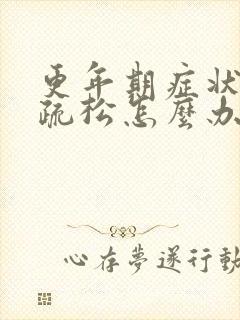 更年期症狀
疏松怎麼办
心存夢遂行動